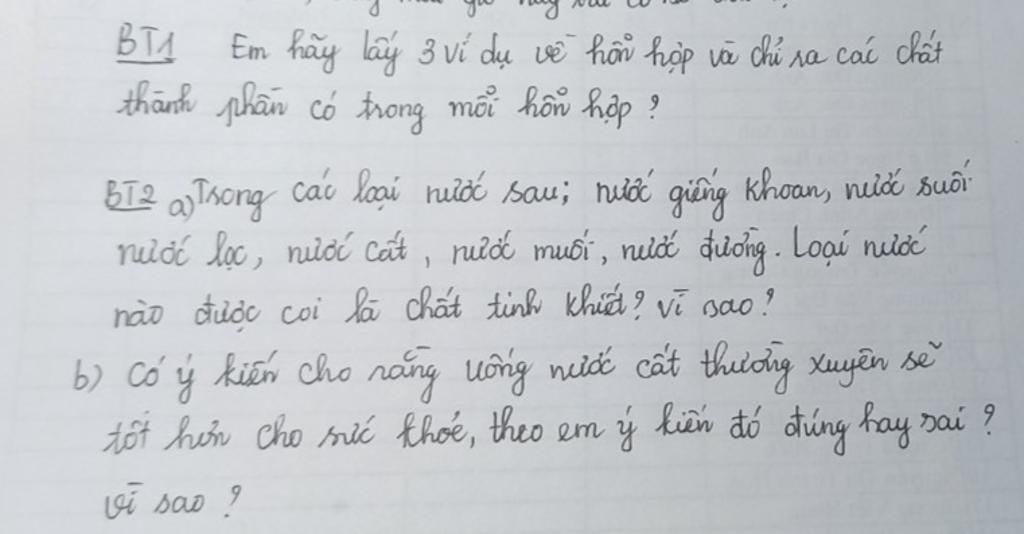 BT1 Em hãy lấy 3 ví dụ về hỗn hợp và chỉ ra các chất
thành phần có trong mỗi hỗn hợp ?
BT2 a) Trong các loại nước sau; nước giếng khoan, nước suối
nước lọc, nước cất, nước muối, nước đường. Loại nước
nào được coi là chất tinh khiết? vì sao?
b) Có ý kiến cho rằng uống nước cất thường xuyên sẽ
tốt hơn cho sức khoẻ, theo em ý kiến đó đúng hay sai ?
vì sao ?